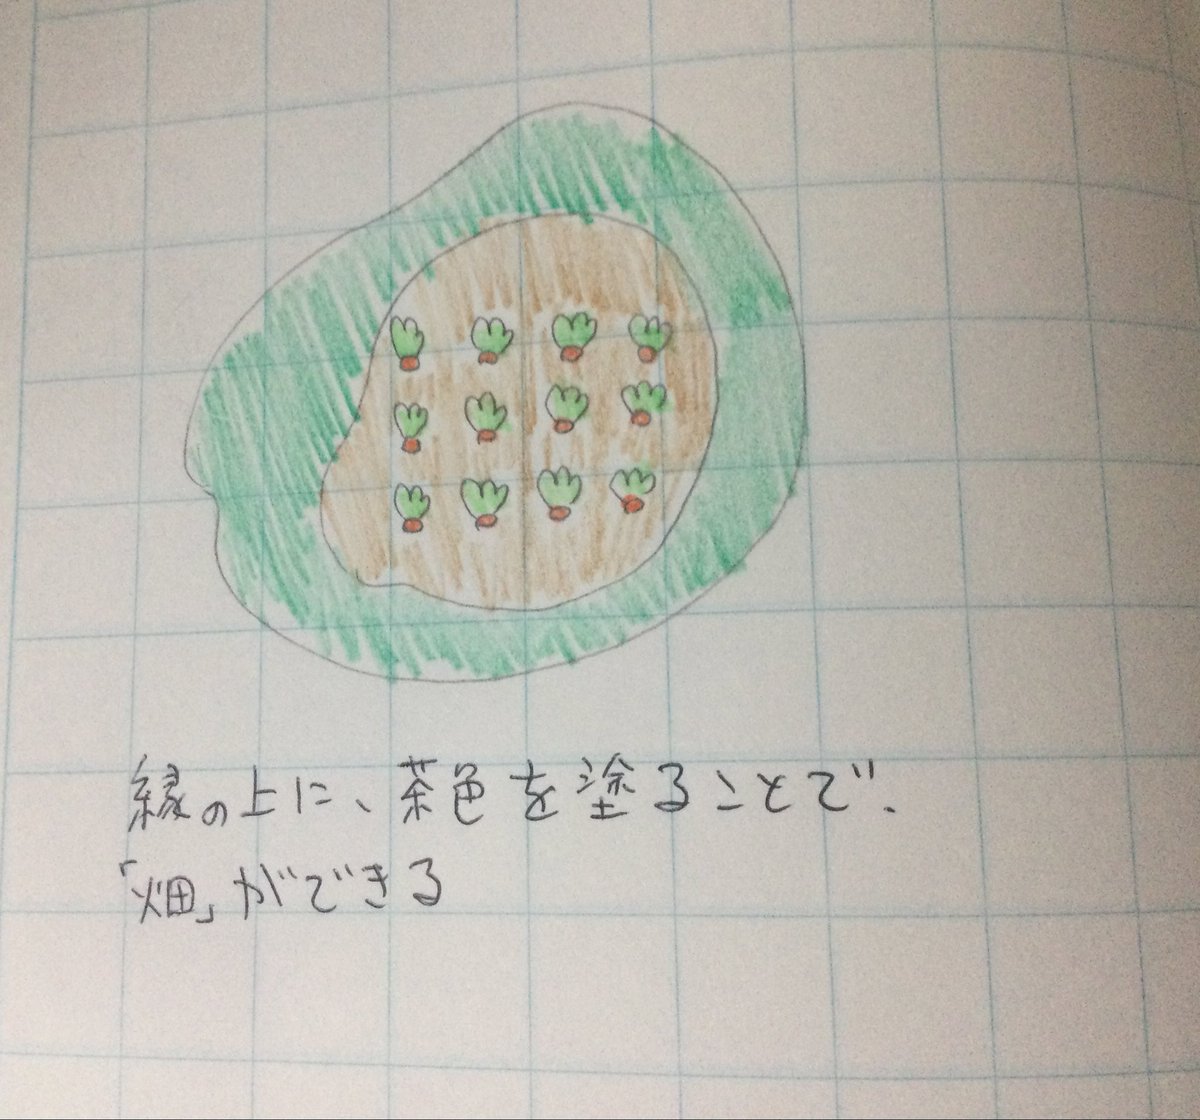 縁の上に、茶色を塗ることで、
「畑」ができる